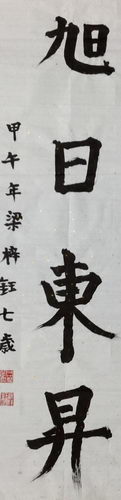 旭日東昇
甲午年梁梓鈺七歲